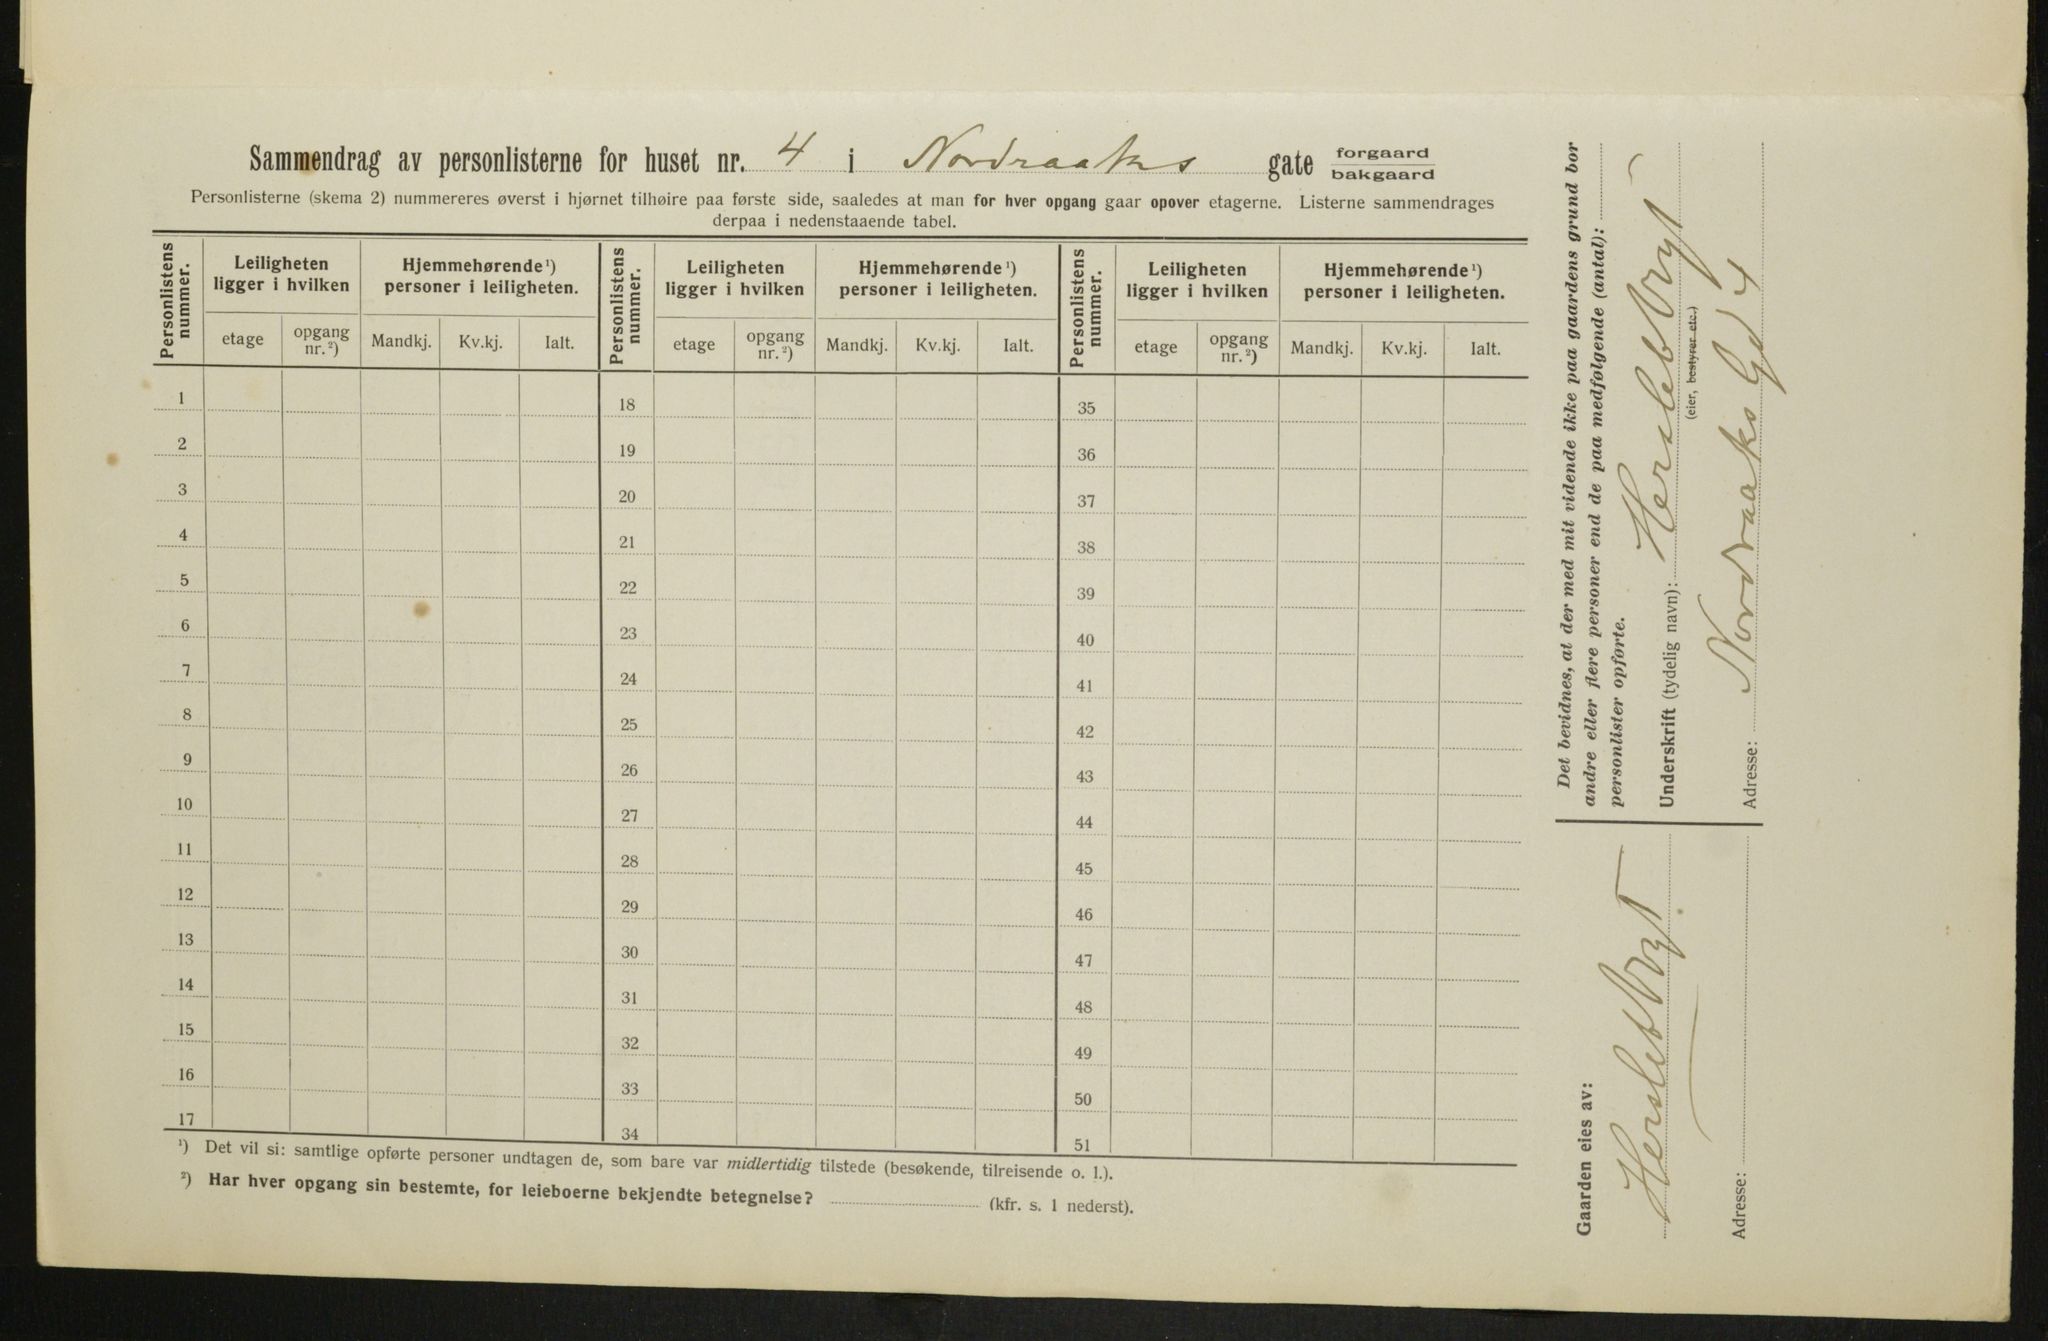 Sammendrag av personlisterne for huset nr. 4 i Nordraaks gate forgaard bakgaard
Personlisterne (skema 2) nummereres øverst i hjørnet tilhøire paa første side, saaledes at man for hver opgang gaar opover etagerne. Listerne sammendrages
derpaa i nedenstaaende tabel.
Personlistens nummer. Leiligheten ligger i hvilken Hjemmehørende ¹) personer i leiligheten. Personlistens nummer. Leiligheten ligger i hvilken Hjemmehørende ¹) personer i leiligheten. Personlistens nummer. Leiligheten ligger i hvilken Hjemmehørende ¹) personer i leiligheten.
etage opgang nr. ²) Mandkj. Kv.kj. Ialt. etage opgang nr. ²) Mandkj. Kv.kj. Ialt. etage opgang nr. ²) Mandkj. Kv.kj. Ialt.
1 18 35
2 19 36
3 20 37
4 21 38
5 22 39
6 23 40
7 24 41
8 25 42
9 26 43
10 27 44
11 28 45
12 29 46
13 30 47
14 31 48
15 32 49
16 33 50
17 34 51
¹) Det vil si: samtlige opførte personer undtagen de, som bare var midlertidig tilstede (besøkende, tilreisende o. l.).
²) Har hver opgang sin bestemte, for leieboerne bekjendte betegnelse? (kfr. s. 1 nederst).
Det bevidnes, at der med mit vidende ikke paa gaardens grund bor
andre eller flere personer end de paa medfølgende (antal):
personlister opførte.
Underskrift (tydelig navn): Hersleb
(eier, bestyrer etc.)
Adresse: Nordraaks Gd 4
Gaarden eies av:
Hersleb
Adresse: